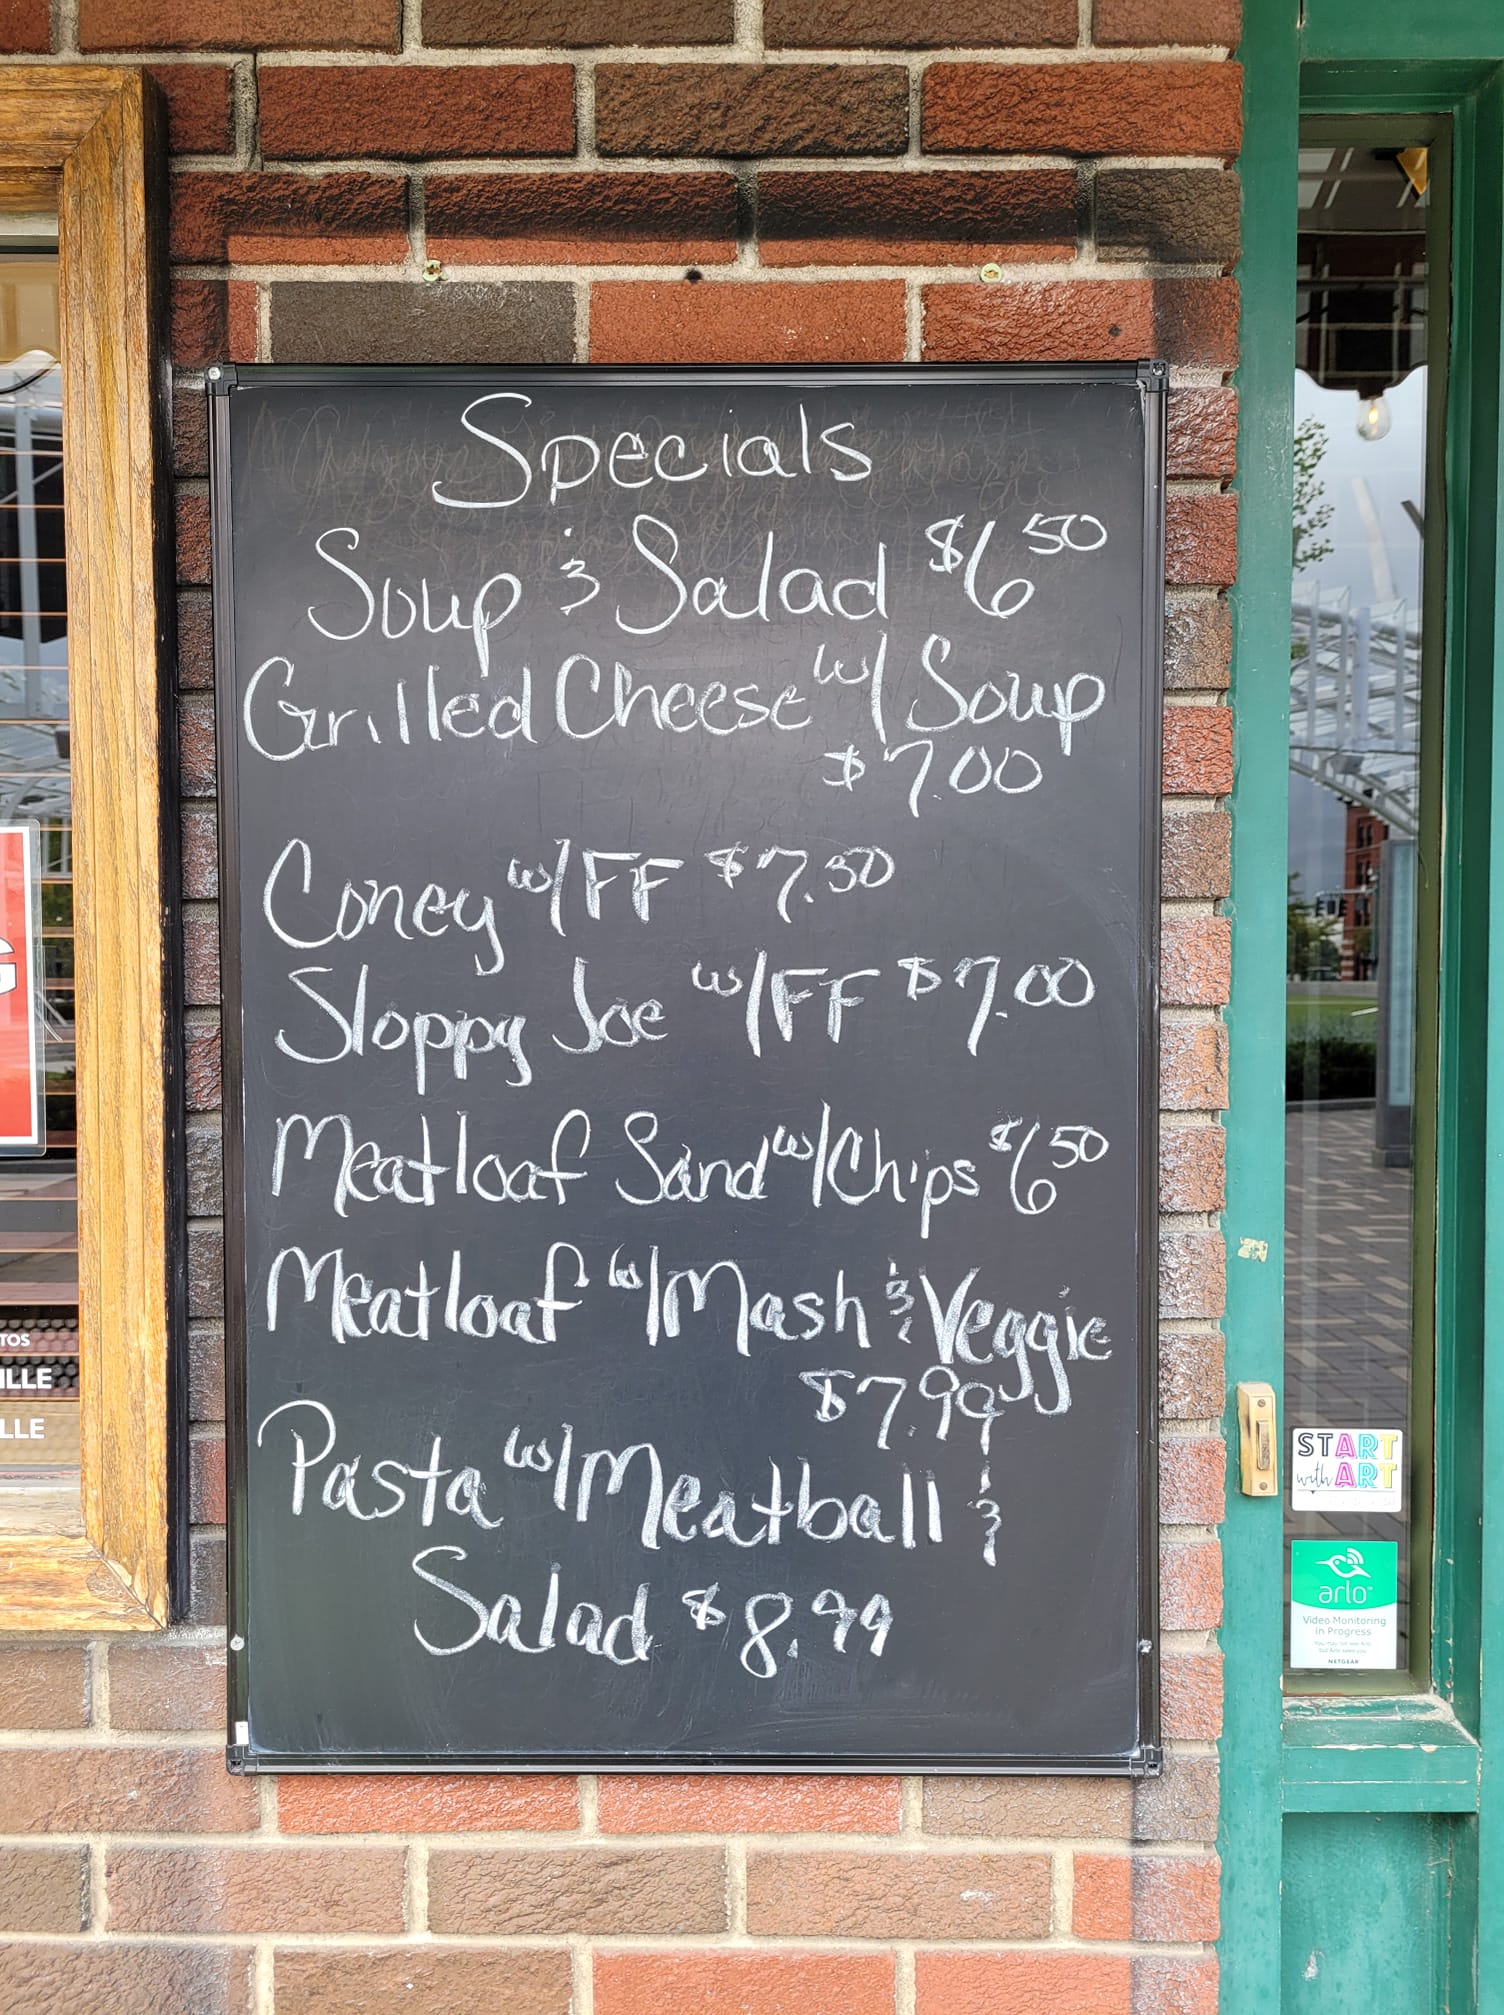 Specials
Soup & Salad $6 50
Grilled Cheese w/ Soup
$7.00
Coney w/FF $7.50
Sloppy Joe w/FF $7.00
Meatloaf Sand w/Chips $6 50
Meatloaf w/Mash & Veggie
$7.99
Pasta w/Meatball &
Salad $8.99
G
TOS
ILLE
LLE
START
with ART
arlo
Video Monitoring
in Progress
NETGEAR